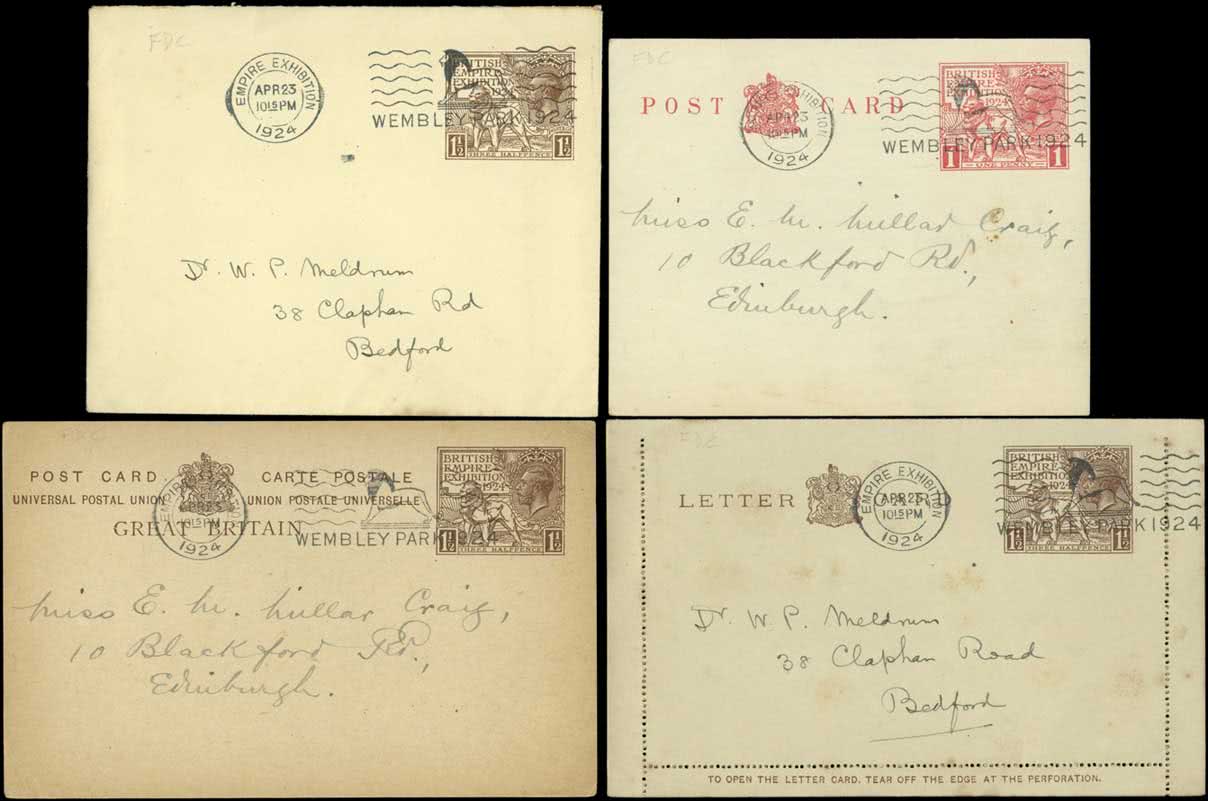 FDC
EMPIRE EXHIBITION
APR 23
10.15 PM
1924
WEMBLEY PARK 1924
BRITISH
EMPIRE
EXHIBITION
1924
1½ THREE HALFPENCE 1½
Dr. W. P. Meldrum
38 Clapham Rd
Bedford
FDC
POST CARD
EMPIRE EXHIBITION
APR 23
10.15 PM
1924
WEMBLEY PARK 1924
BRITISH
EMPIRE
EXHIBITION
1924
1 ONE PENNY 1
Miss E. M. Millar Craig,
10 Blackford Rd.,
Edinburgh.
FDC
POST CARD CARTE POSTALE
UNIVERSAL POSTAL UNION UNION POSTALE UNIVERSELLE
GREAT BRITAIN
EMPIRE EXHIBITION
APR 23
10.15 PM
1924
WEMBLEY PARK 1924
BRITISH
EMPIRE
EXHIBITION
1924
1½ THREE HALFPENCE 1½
Miss E. M. Millar Craig,
10 Blackford Rd.,
Edinburgh.
FDC
LETTER CARD
EMPIRE EXHIBITION
APR 23
10.15 PM
1924
WEMBLEY PARK 1924
BRITISH
EMPIRE
EXHIBITION
1924
1½ THREE HALFPENCE 1½
Dr. W. P. Meldrum
38 Clapham Road
Bedford
TO OPEN THE LETTER CARD, TEAR OFF THE EDGE AT THE PERFORATION.